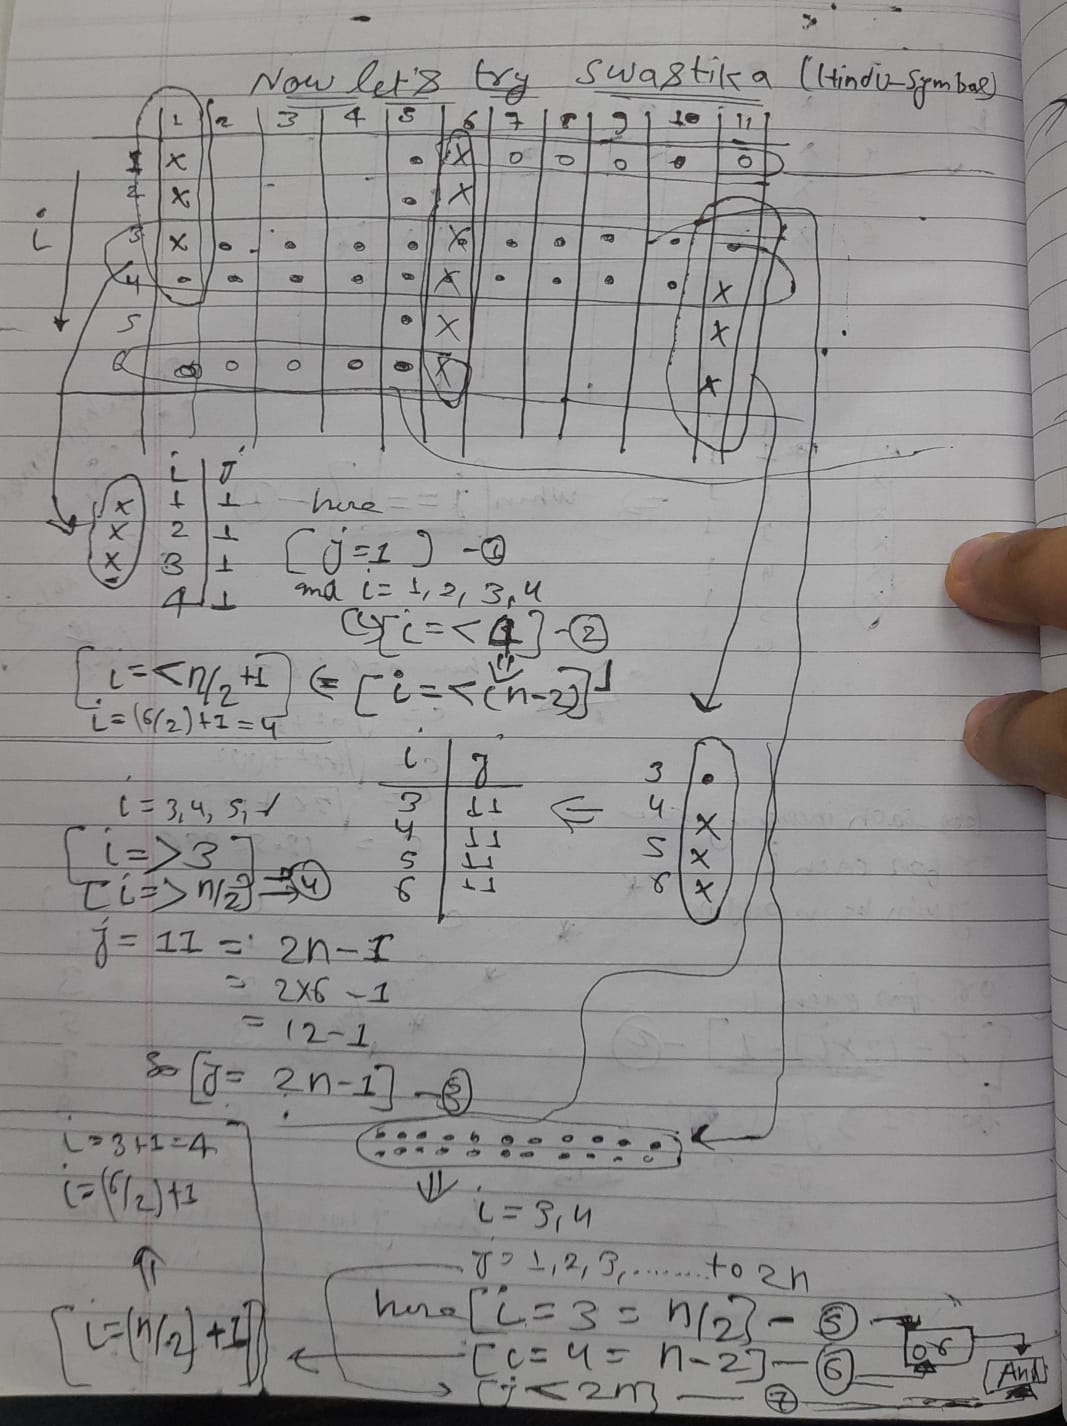 Now let's try Swastika (Hindu-Symbol)
1 2 3 4 5 6 7 8 9 10 11
1 x • x o o o • o
2 x • x
3 x • • • • x • • • • •
4 • • • • • x • • • • x
i
5 • x x
6 • o o • • x x
i j
x 1 1
x 2 1
x 3 1
4 1
here
[j=1] -①
and i= 1, 2, 3, 4
[i=<4] -②
[i=<n/2+1] ⇐ [i=<(n-2)]
i=(6/2)+1=4
i j
3 11
4 11
5 11
6 11
⇐
3 •
4 x
5 x
6 x
i=3,4,5,
[i=>3]
[i=>n/2] → ④
j= 11 = 2n-1
= 2x6-1
= 12-1
So [j= 2n-1] -③
i=3+1=4
i=(6/2)+1
⇑
[i=(n/2)+1]
⇓
i=3,4
j=1,2,3,.......to 2n
here [i=3= n/2] - ⑤
[i=4= n-2] - ⑥
[j<2n] — ⑦
or
And